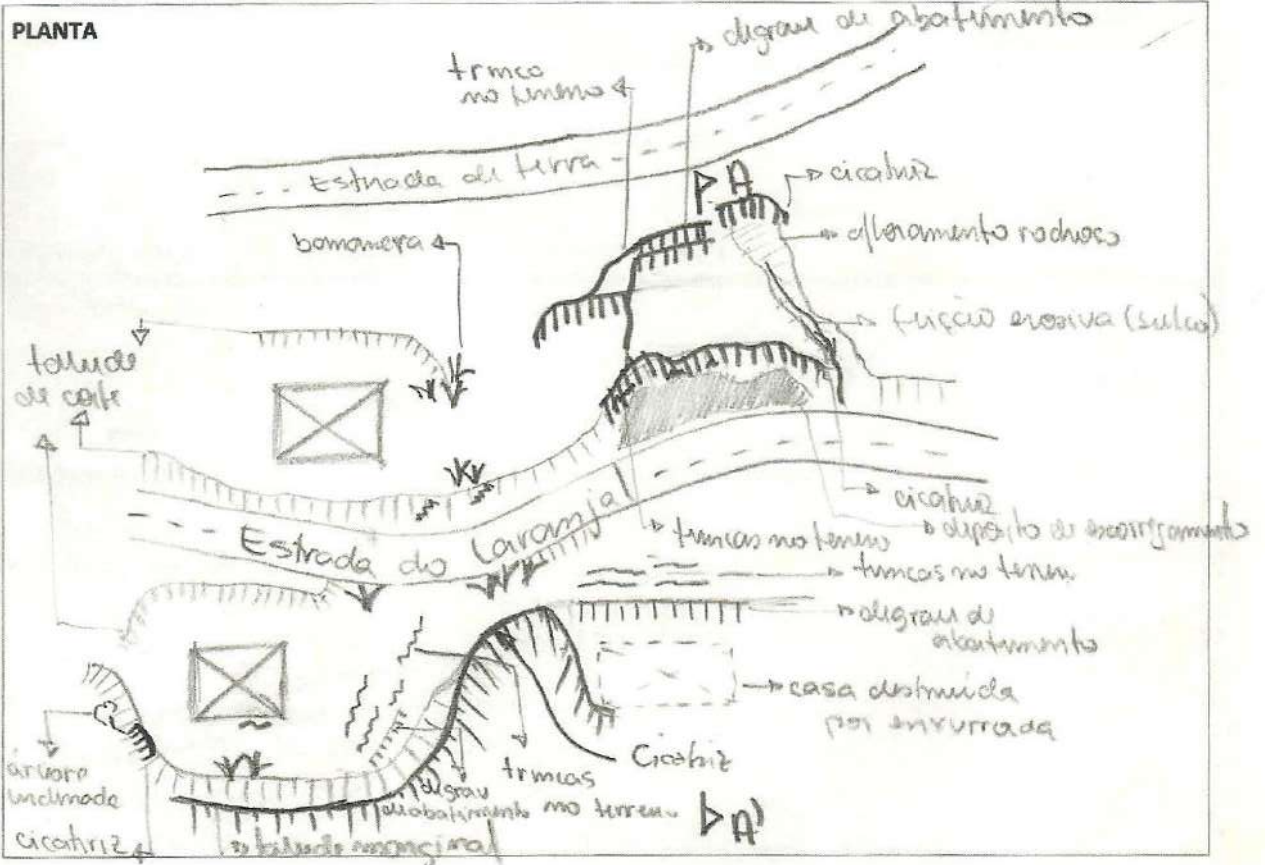 PLANTA
degrau de abatimento
trinca
no terreno
Estrada de terra
A
cicatriz
bananeira
afloramento rochoso
feição erosiva (sulco)
talude
de corte
cicatriz
depósito de escorregamento
Estrada do Laranja
trincas no terreno
trincas no terreno
degrau de
abatimento
casa destruída
por enxurrada
Cicatriz
árvore
inclinada
trincas
no terreno
degrau
de abatimento
A'
cicatriz
talude marginal